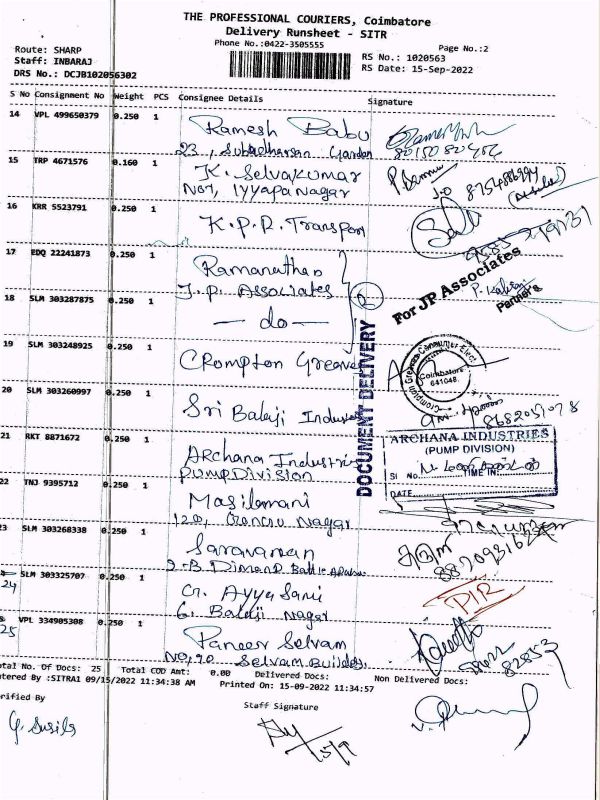 THE PROFESSIONAL COURIERS, Coimbatore
Delivery Runsheet - SITR
Phone No.:0422-3505555
Page No.:2
Route: SHARP
Staff: INBARAJ
DRS No.: DCJB102056302
RS No.: 1020563
RS Date: 15-Sep-2022
S No Consignment No Weight PCS Consignee Details Signature
14 VPL 499650379 0.250 1 Ramesh Babu
23, Subadharsan Garden
15 TRP 4671576 0.160 1 K. Selvakumar
No1, Iyyapa Nagar
16 KRR 5523791 0.250 1 K.P.R. Transport
17 EDQ 22241873 0.250 1 Ramanathan
J.P. Associates
For JP Associates
Partners
18 SLM 303287875 0.250 1 - do -
DOCUMENT DELIVERY
19 SLM 303248925 0.250 1 Crompton Greaves
Coimbatore
641048.
20 SLM 303260997 0.250 1 Sri Balaji Industries
21 RKT 8871672 0.250 1 Archana Industries
Pump Division
ARCHANA INDUSTRIES
(PUMP DIVISION)
Sl No. TIME IN:
DATE
22 TNJ 9395712 0.250 1 Masilamani
Nagar
23 SLM 303268338 0.250 1 Saravanan
24 SLM 303325707 0.250 1 G. Ayya Sami
6. Balaji Nagar
25 VPL 334905308 0.250 1 Paneer Selvam
No, 90 Selvam Builders.
otal No. Of Docs: 25 Total COD Amt: 0.00 Delivered Docs: Non Delivered Docs:
tered By :SITRA1 09/15/2022 11:34:38 AM Printed On: 15-09-2022 11:34:57
rified By Staff Signature
G. Susila
15/9